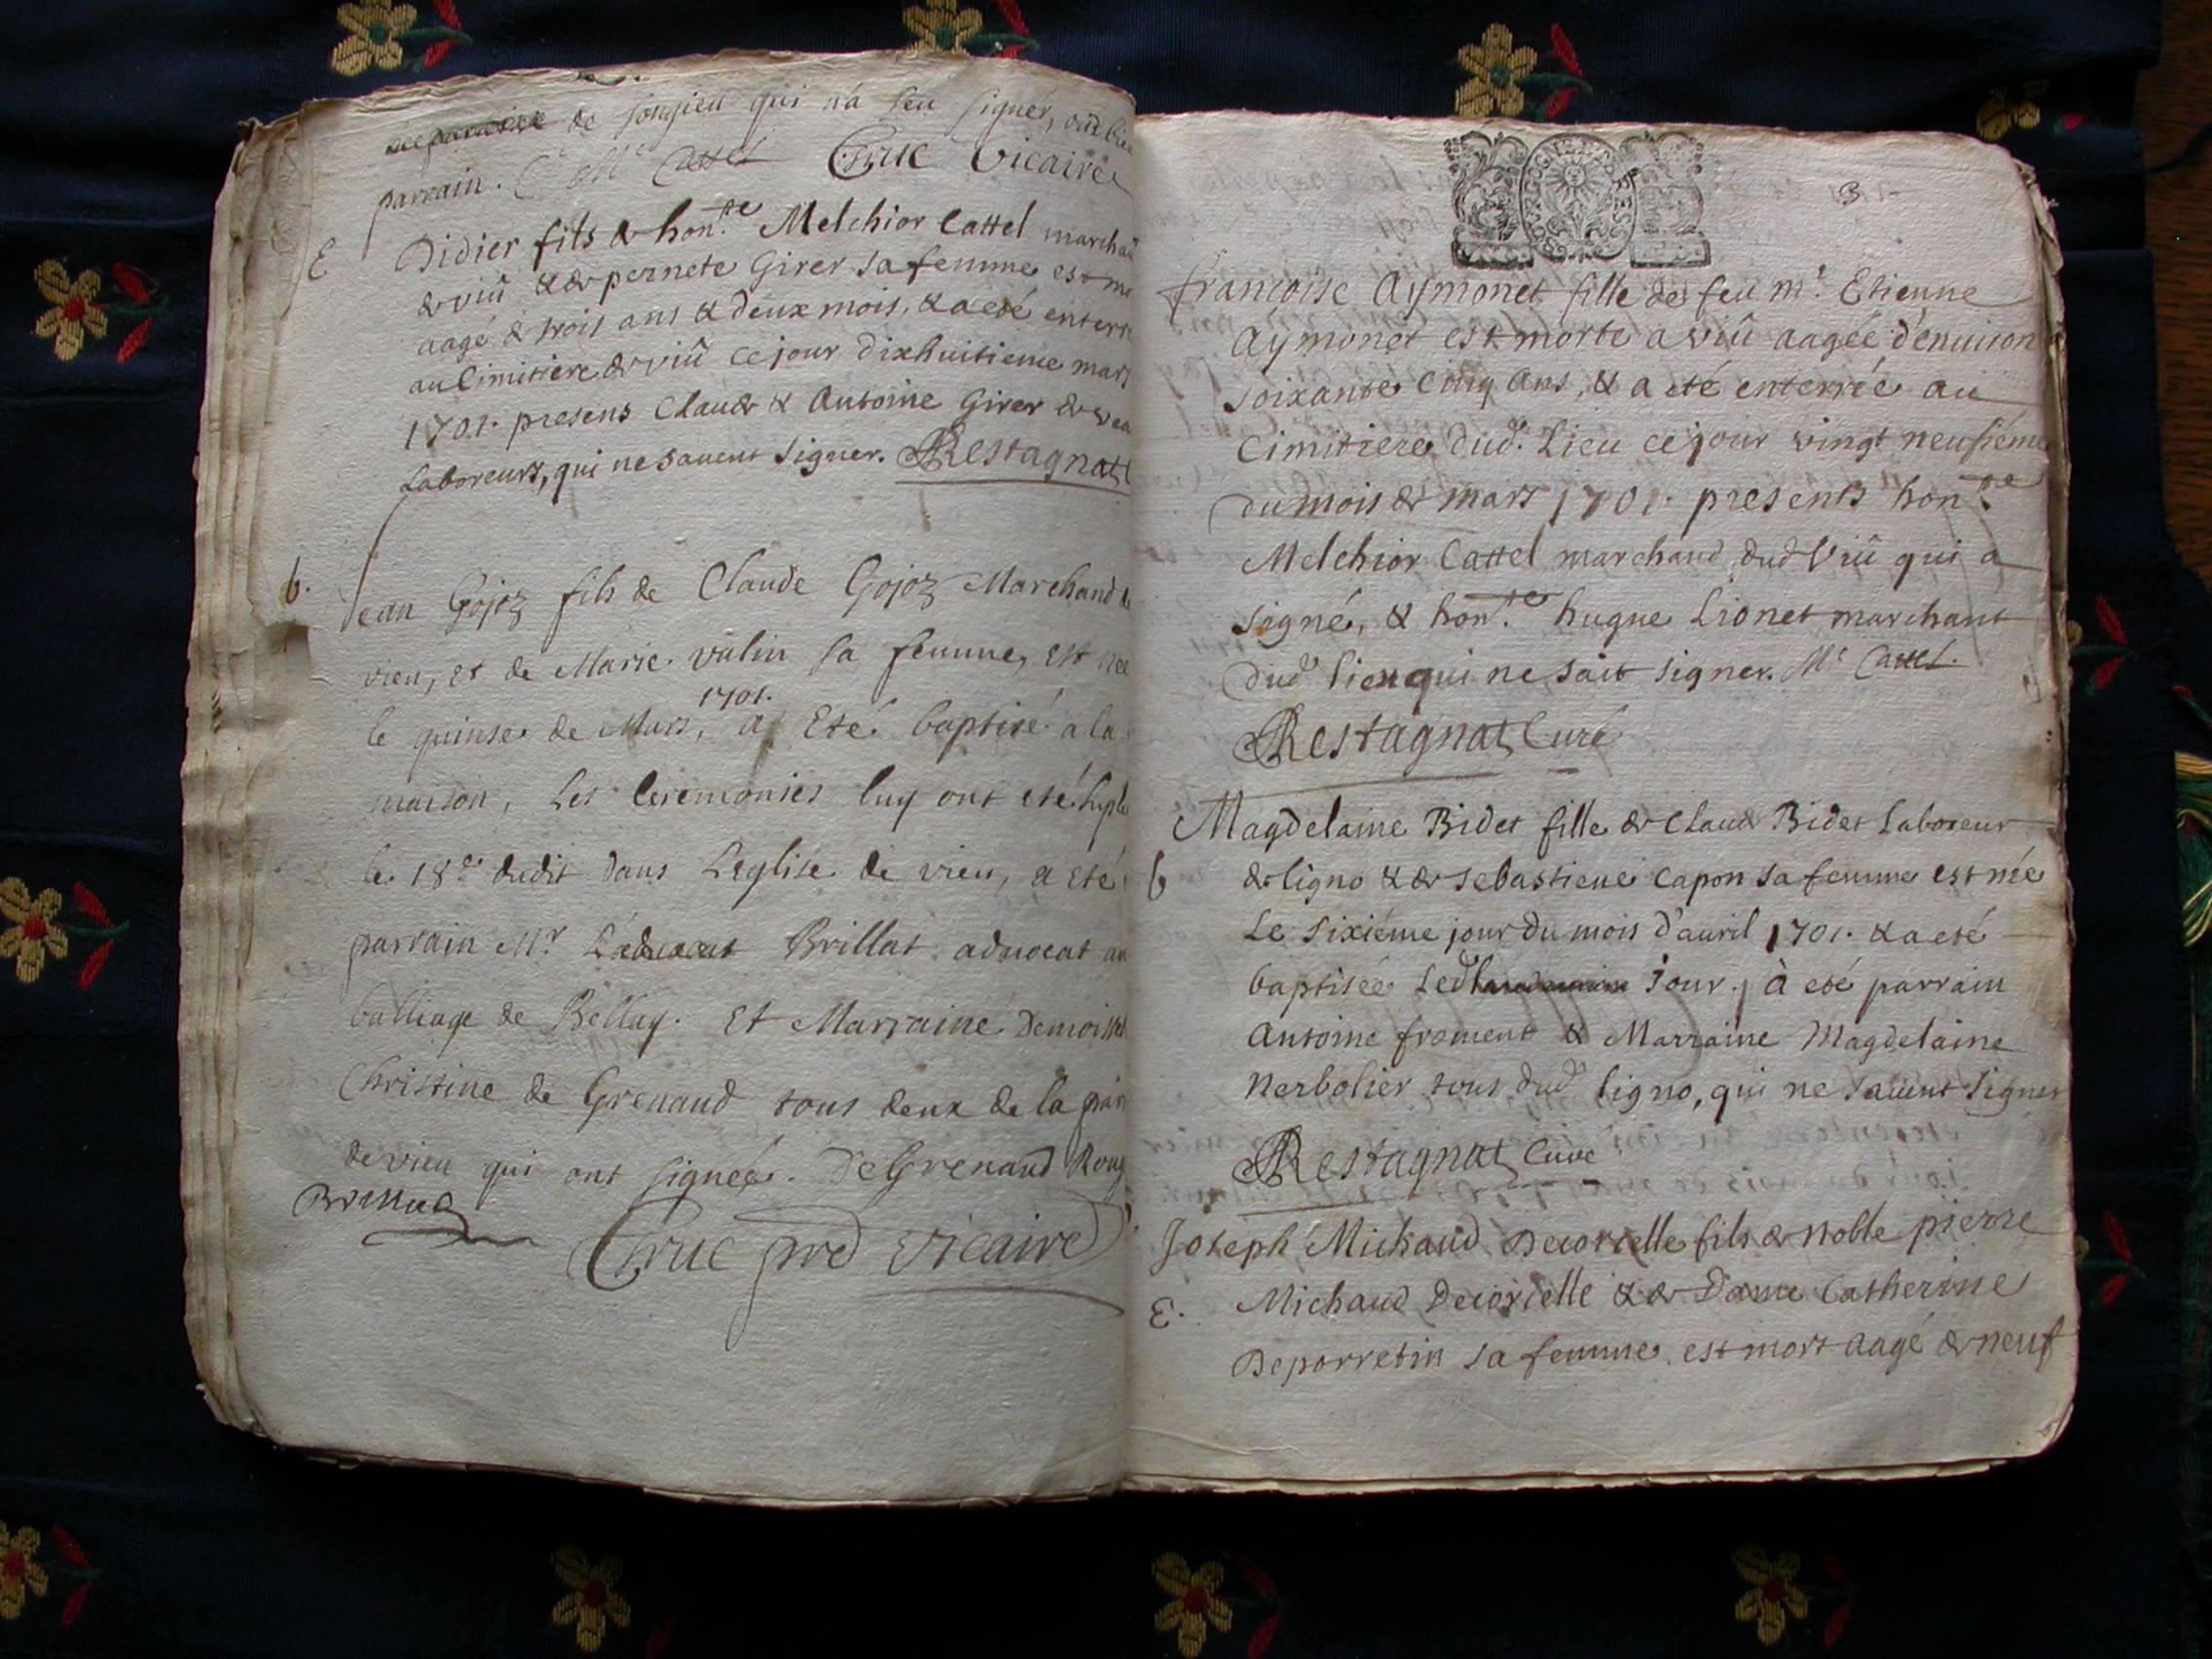 de Songieu qui n'a seu signer, ond bie
parrain. Mr Cattel Truc Vicaire
E
Didier fils de hon.te Melchior Cattel marchan
de viû & de pernete Girer sa femme est mo
aagé de trois ans & deux mois, & a eté enterr
au Cimitiere de viû ce jour dixhuitieme mars
1701. presens Claude & Antoine Girer de
Laboreurs, qui ne savent signer. Restagnat
b.
Jean Gojoz fils de Claude Gojoz Marchand de
vieu, et de Marie valin sa femme, est née
1701.
le quinse de Mars, a Eté baptisé a la
maison, Les Ceremonies luy ont eté suple
le 18e dudit dans L'eglise de vieu, a eté
parrain Mr L'aduocat Brillat aduocat au
balliage de Bellay. Et Marraine Demoisel
Christine de Grenaud tous deux de la par
de vieu qui ont signéz. DeGrenaud Roug
Brillat
Truc pre Vicaire
BOURGOGNE ET BRESSE
3
francoise Aymonet fille de feu mr. Etienne
Aymonet est morte a viû aagée d'enuiron
soixante cinq ans, & a eté enterrée au
Cimitiere dud. Lieu ce jour vingt neufiéme
du mois de mars 1701. presents hon.te
Melchior Cattel marchand dud Viû qui a
signé, & hon.te hugue Lionet marchant
dud lieu qui ne sait signer. Mr Cattel.
Restagnat Curé
Magdelaine Bidet fille de Claude Bidet Laboreur
b
de ligno & de sebastiene Capon sa femme est née
Le sixiéme jour du mois d'auril 1701. & a eté
baptisée led jour. à eté parrain
Antoine froment & Marraine Magdelaine
Nerbolier tous dud ligno, qui ne sauent signer
Restagnat Curé
Joseph Michaud Decorcelle fils de Noble pierre
E.
Michaud Decorcelle & de Dame Catherine
Deporretin sa femme est mort aagé de neuf